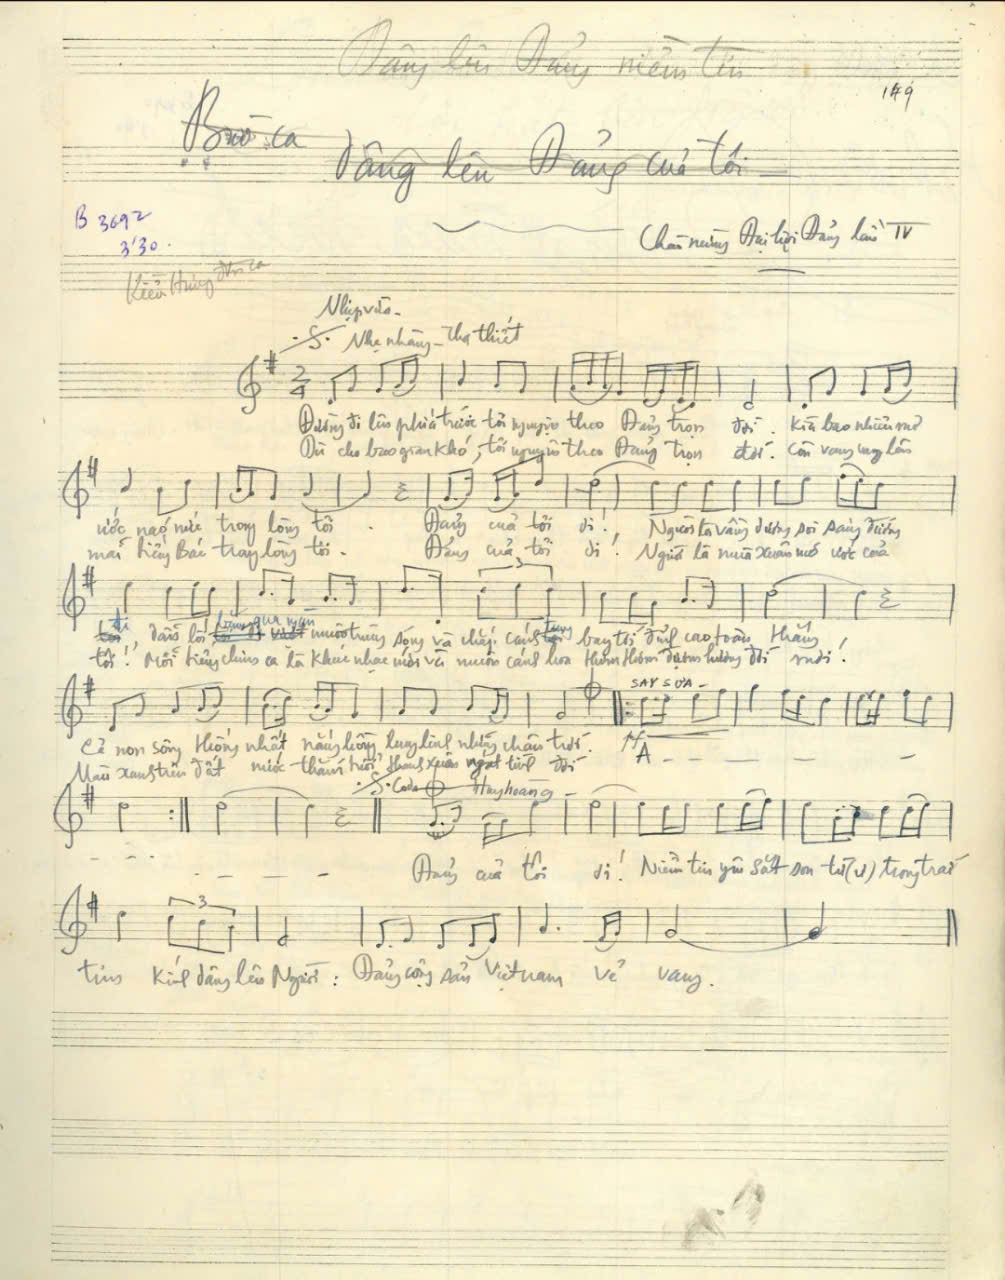 Dâng lên Đảng niềm tin
149
Bài ca
dâng lên Đảng của tôi
B 3692
3'30.
Chào mừng Đại hội Đảng lần IV
Kiều Hưng đơn ca
Nhịp vừa -
.S. Nhẹ nhàng - Tha thiết
2
4
Đường đi lên phía trước tôi nguyện theo Đảng trọn đời. Kìa bao nhiêu mơ
Dù cho bao gian khó, tôi nguyện theo Đảng trọn đời. Còn vang vọng lên
ước nao nức trong lòng tôi. Đảng của tôi ơi! Người là vầng dương soi sáng đường
mãi tiếng Bác trong lòng tôi. Đảng của tôi ơi! Người là mùa xuân mơ ước của
3
đi
băng qua ngàn
tung
dẫn lối muôn trùng sóng và chắp cánh bay tới đỉnh cao toàn thắng
tôi! Mỗi tiếng chim ca là khúc nhạc mới và muôn cánh hoa thơm thơm đượm hương đời mới!
SAY SƯA -
Cả non sông thống nhất nắng hồng lung linh những chân trời.
A - - - -
Màu xanh trên đất nước thắm tươi thanh xuân ngát tình đời
.S. Coda Huy hoàng -
- - - - - - Đảng của tôi ơi! Niềm tin yêu sắt son từ (ừ) trong trái
3
tim kính dâng lên Người: Đảng cộng sản Việt nam vẻ vang.